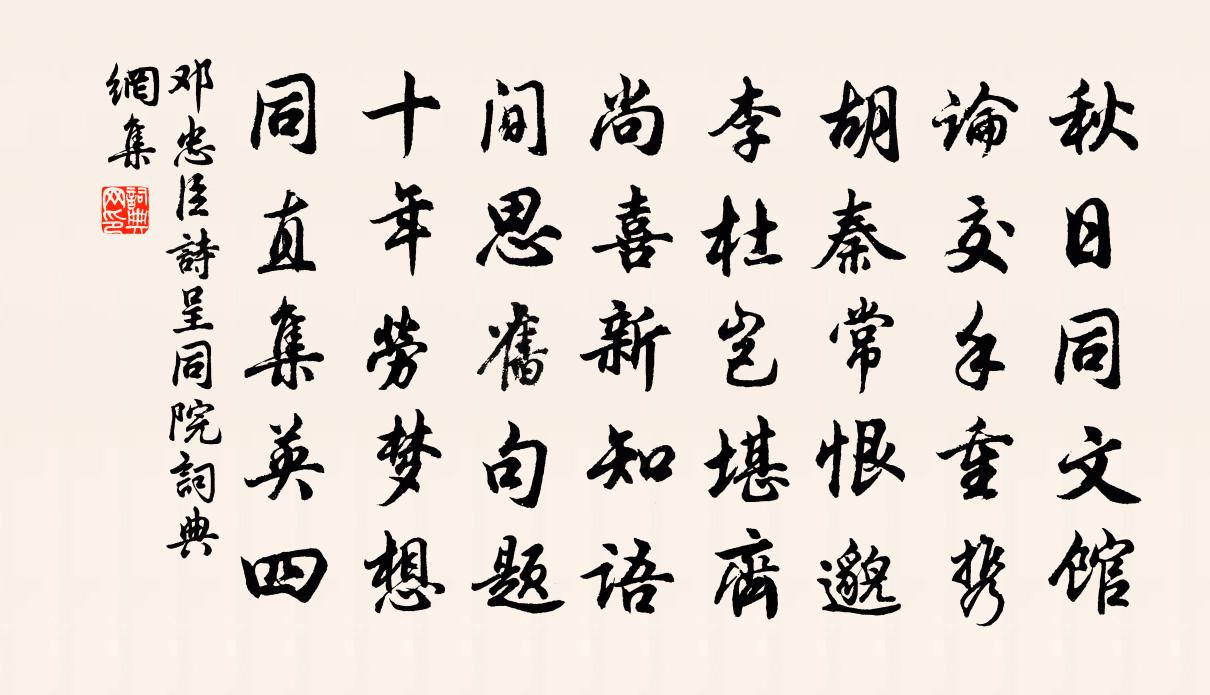 秋日同文馆
論交手重携
胡秦常恨邈
李杜岂堪齊
尚喜新知語
间思舊句題
十年勞梦想
同直集英四
邓忠臣詩呈同院詞典
網集
詞典
网印